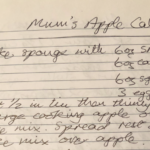 Mum's Apple Ca
ke sponge with 6oz S
6oz
6oz
3 egg
½ in tin then thinly
rge cooking apple
e mix. Spread rest
e mix over apple.